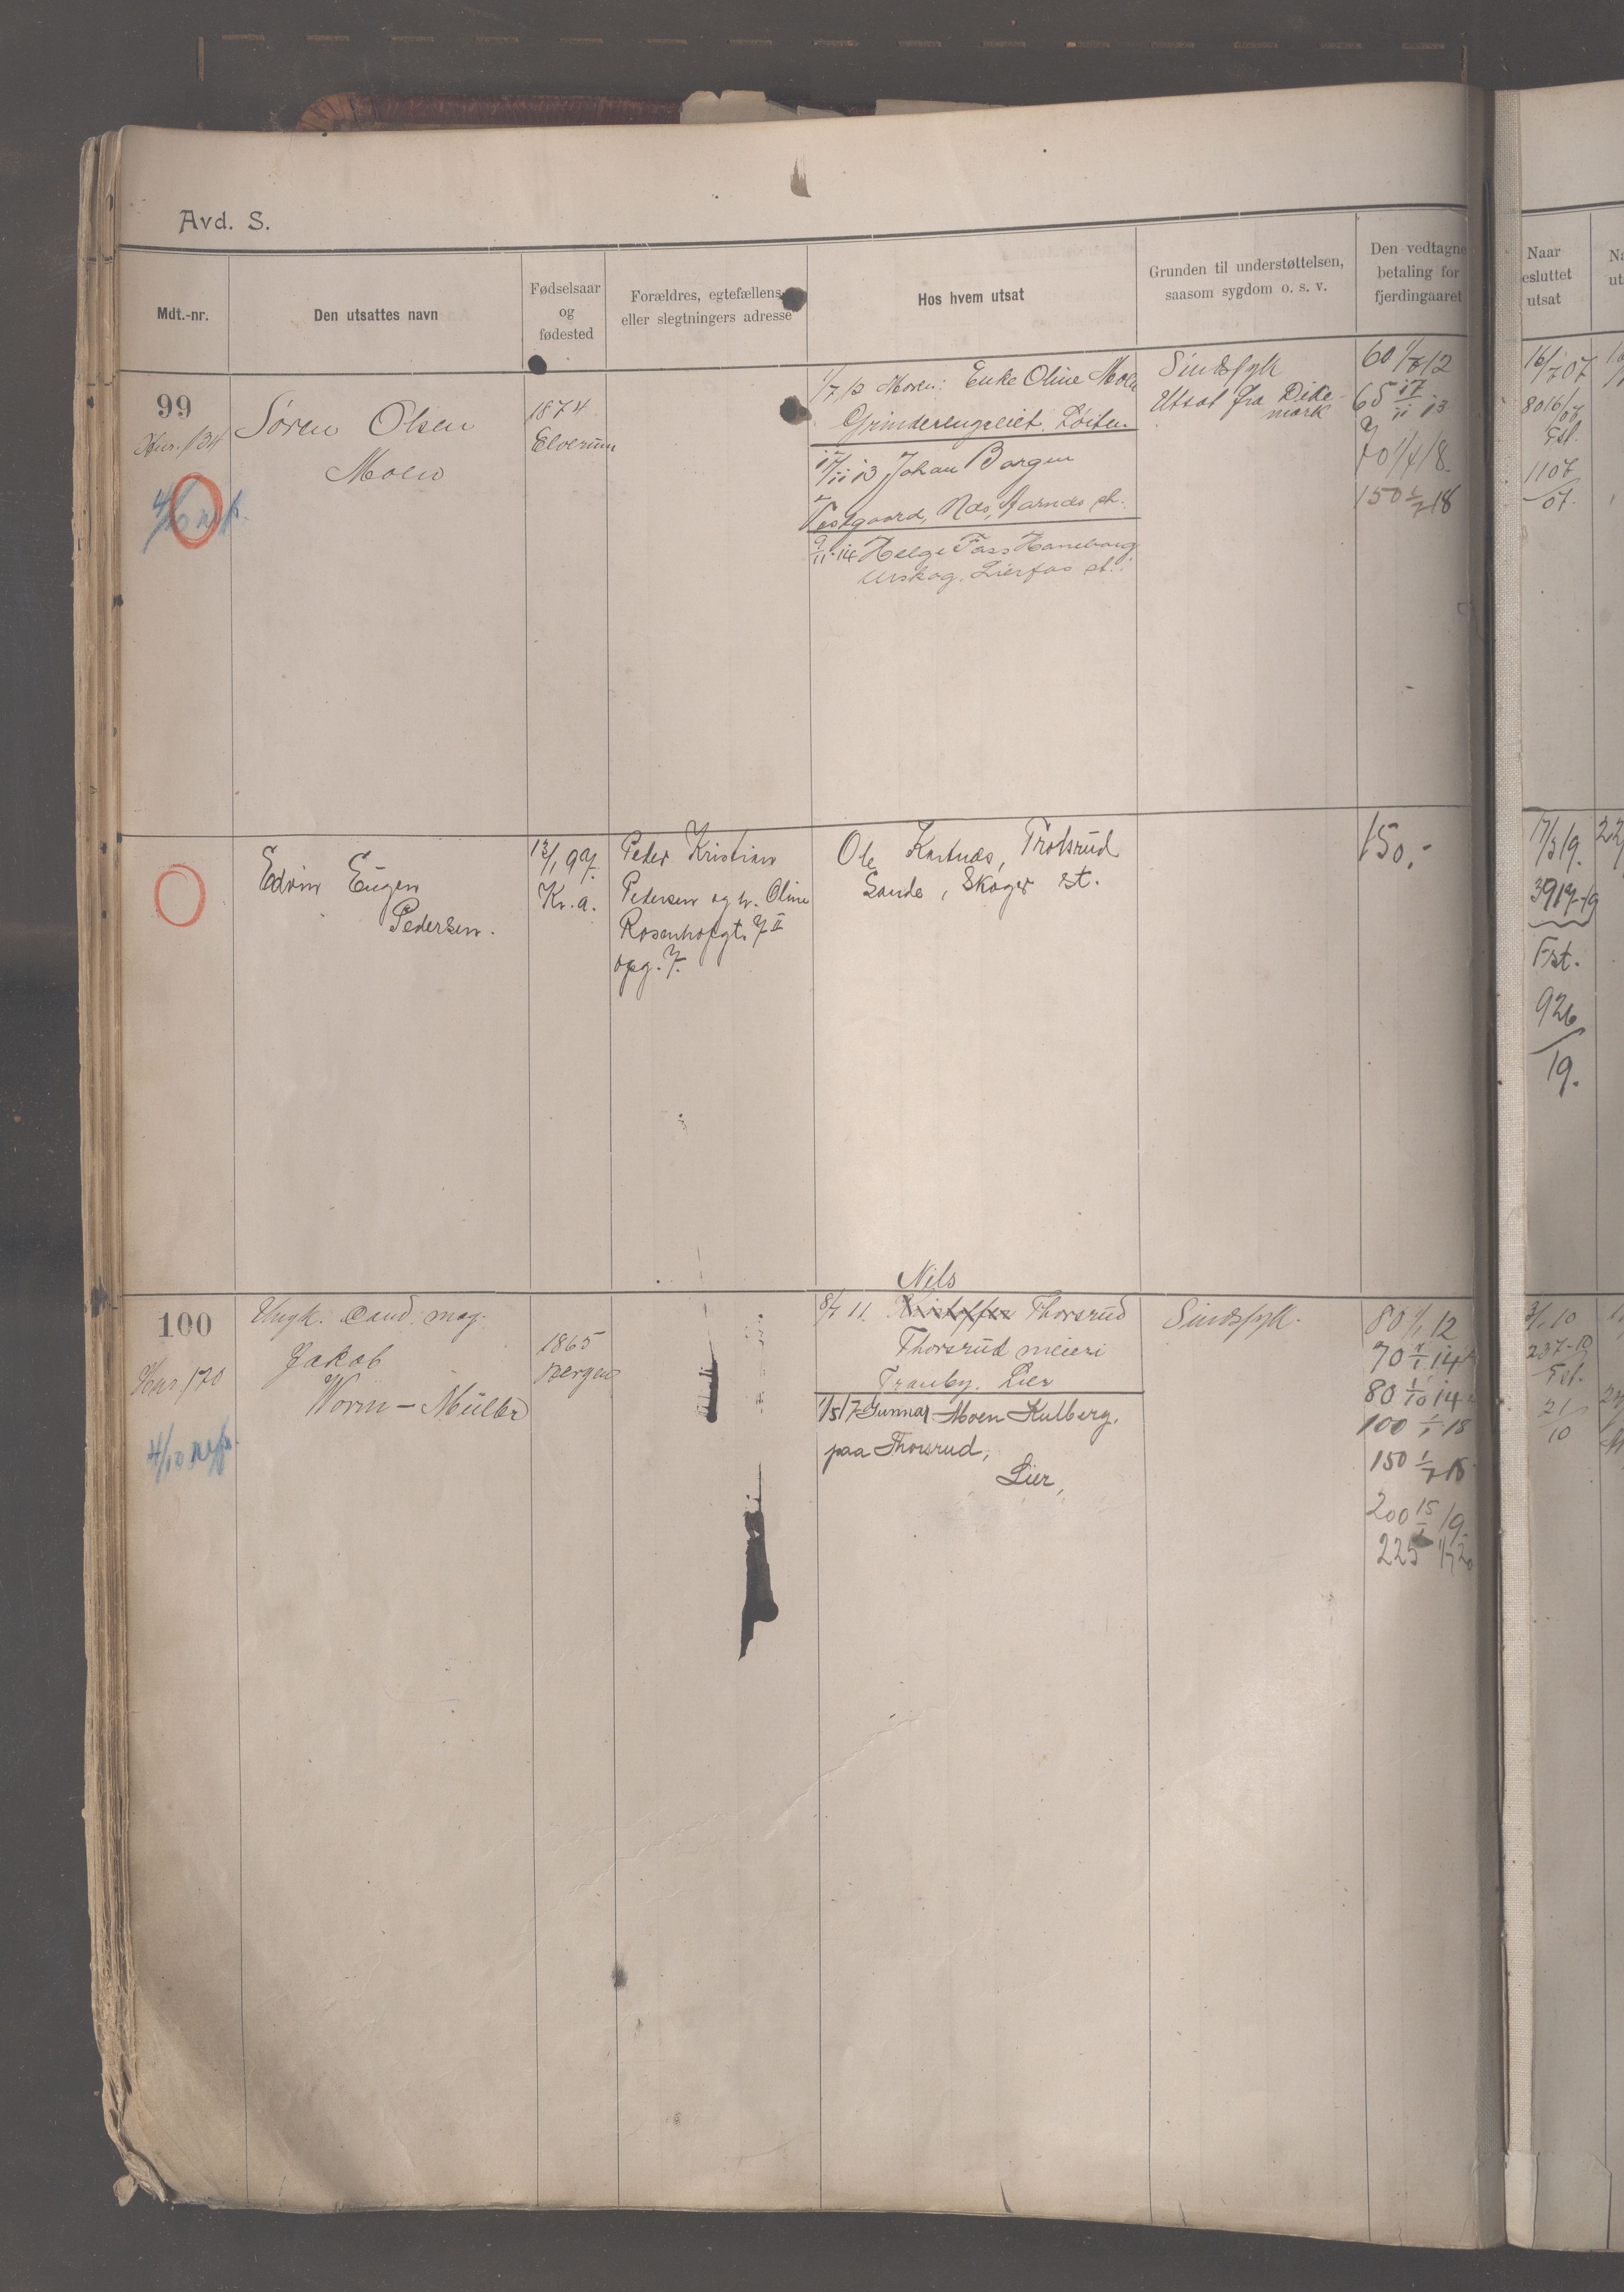 Avd. S.
Mdt.-nr.
Den utsattes navn
Fødselsaar
og
fødested
Forældres, egtefællens
eller slegtningers adresse
Hos hvem utsat
Grunden til understøttelsen,
saasom sygdom o. s. v.
Den vedtagne
betaling for
fjerdingaaret
Naar
esluttet
utsat
99
134
Søren Olsen
Moen
1874
Elverum
Moren: Enke Oline Moen
Grinderengseiet. Løiten
17/11 13 Johan Borgen
Vestgaard, Nds, Aarnds st.
9/11 14 Helge Foss Haneborg
Urskog. Lierfos st.
Sindssyk
Utsat fra Dike-
mark
60 1/7 12
65 17/11 13
70 1/4 18.
150 1/7 18
16/7 07
8016/
07
Fst.
1107
07.
Edvin Eugen
Pedersen.
12/1 97.
Kr.a.
Peder Kristian
Pedersen og h. Oline
Rosenhofgt. 7 II
opg. 7.
Ole Trolsrud
Sande, Skoger st.
150.-
17/3 19.
3917-19
Fst.
926
19.
100
170
Ungk. Cand. mag.
Jakob
Worm-Müller
1865
Bergen
Nils
8/7 11. Kristoffer Thorsrud
Thorsrud meieri
Tranby. Lier
1/5 17 Gunnar Moen Kulberg,
paa Thorsrud,
Lier,
Sindssyk.
80 1/1 12
70 1/1 14
80 1/10 14
100 1/1 18
150 1/7 18
200 15/1 19.
225 1/7 20
3/1 10
237-10
Fst.
21
10